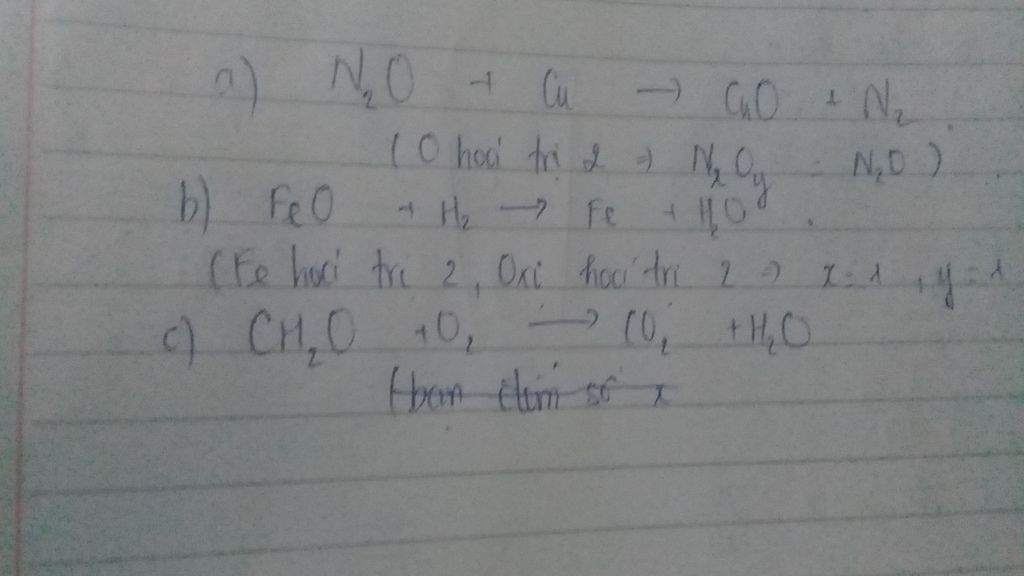 a) N₂O + Cu → CuO + N₂.
(O hoá trị 2 ⇒ NₓOy = N₂O)
b) FeO + H₂ → Fe + H₂O.
(Fe hoá trị 2, Oxi hoá trị 2 ⇒ x = 1, y = 1
c) CH₂O + O₂ → CO₂ + H₂O